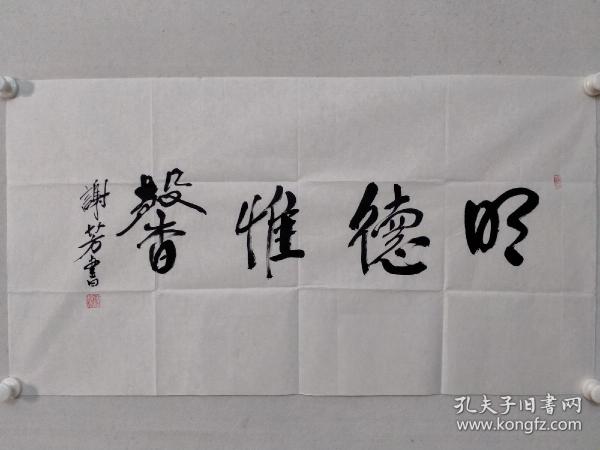 明德惟馨
謝芳書
孔夫子旧書网
www.kongfz.com